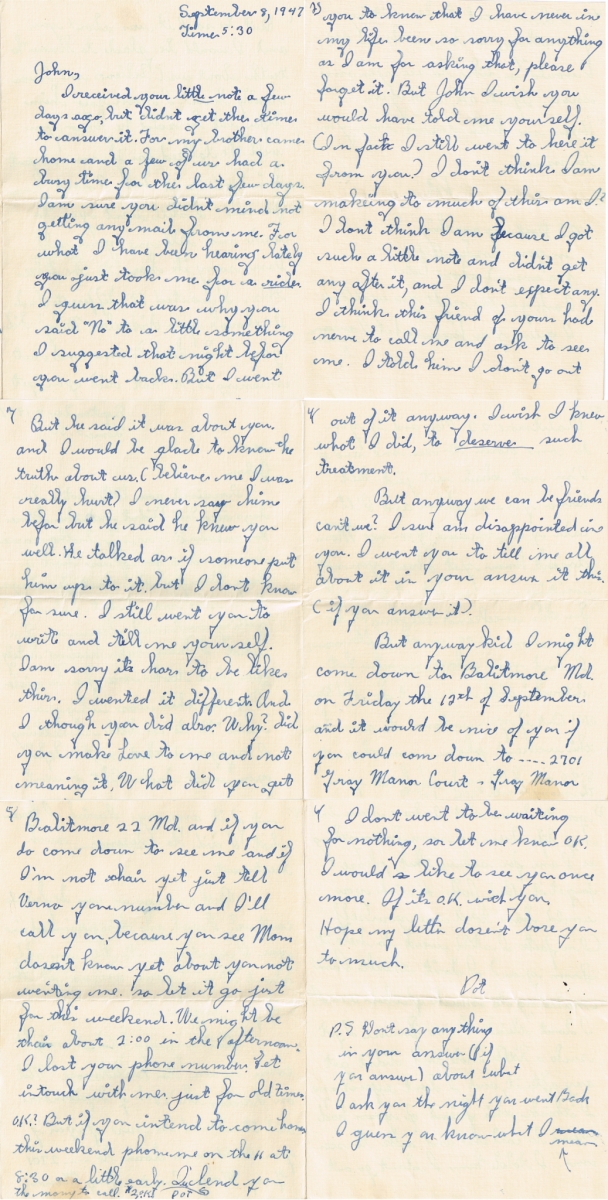 September 8, 1947
Time 5:30
John,
I received your little not a few
days ago, but didnt get the times
to answer it. For my brother came
home and a few of us had a
busy time for the last few days.
I am sure you didnt mind not
getting any mail from me. For
what I have been hearing lately
you just took me for a ride
I guess that was why you
said "No" to a little something
I suggested that night befor
you went back. But I went
2) you to know that I have never in
my life been so sorry for anything
as I am for asking that, please
forget it. But John I wish you
would have told me yourself.
(In fact I still went to here it
from you.) I don't think I am
makeing to much of this am I?
I dont think I am because I got
such a little note and didn't get
any after it, and I don't expect any.
I think this friend of yours had
nerve to call me and ask to see
me. I told him I don't go out
3 But he said it was about you.
and I would be glade to know the
truth about us. (believe me I was
really hurt) I never say him
befor but he said he knew you
well. He talked as if someone put
him up to it. but I dont know
for sure. I still went you to
write and till me yourself.
I am sorry its hars to be likes
this. I wented it different. And
I though you did also. Why? did
you make Love to me and not
meaning it. What did you get
4 out of it anyway. I wish I knew
what I did, to deserve such
treatment.
But anyway we can be friends
can't we? I sure am disappointed in
you. I went you to till me all
about it in your answer it this.
(if you answer it).
But anyway kid I might
come down to Balitmore Md.
on Friday the 12th of September
and it would be nice of you if
you could com down to ---- 2701
Gray Manor Court - Gray Manor
5 Balitmore 22 Md. and if you
do come down to see me and if
I'm not thair yet just tell
Verna your number and I'll
call you, because you see Mom
dosen't know yet about you not
wenting me. so let it go just
for this weekend. We might be
thair about 2:00 in the afternoon.
I lost your phone number. Get
in touch with me, just for old times
O.K.? But if you intend to come home
this weekend phone me on the 11 at
8:30 or a little early. I'll lend you
the money to call.
I don't went to be waiting
for nothing, so let me know OK.
I would like to see you once
more. If its O.K. with you
Hope my lettr dosen't bore you
to much.
Dot
P.S Dont say anything
in your answer (if
you answer) about what
I ask you the night you went Back
I guess you know what I mean
mean